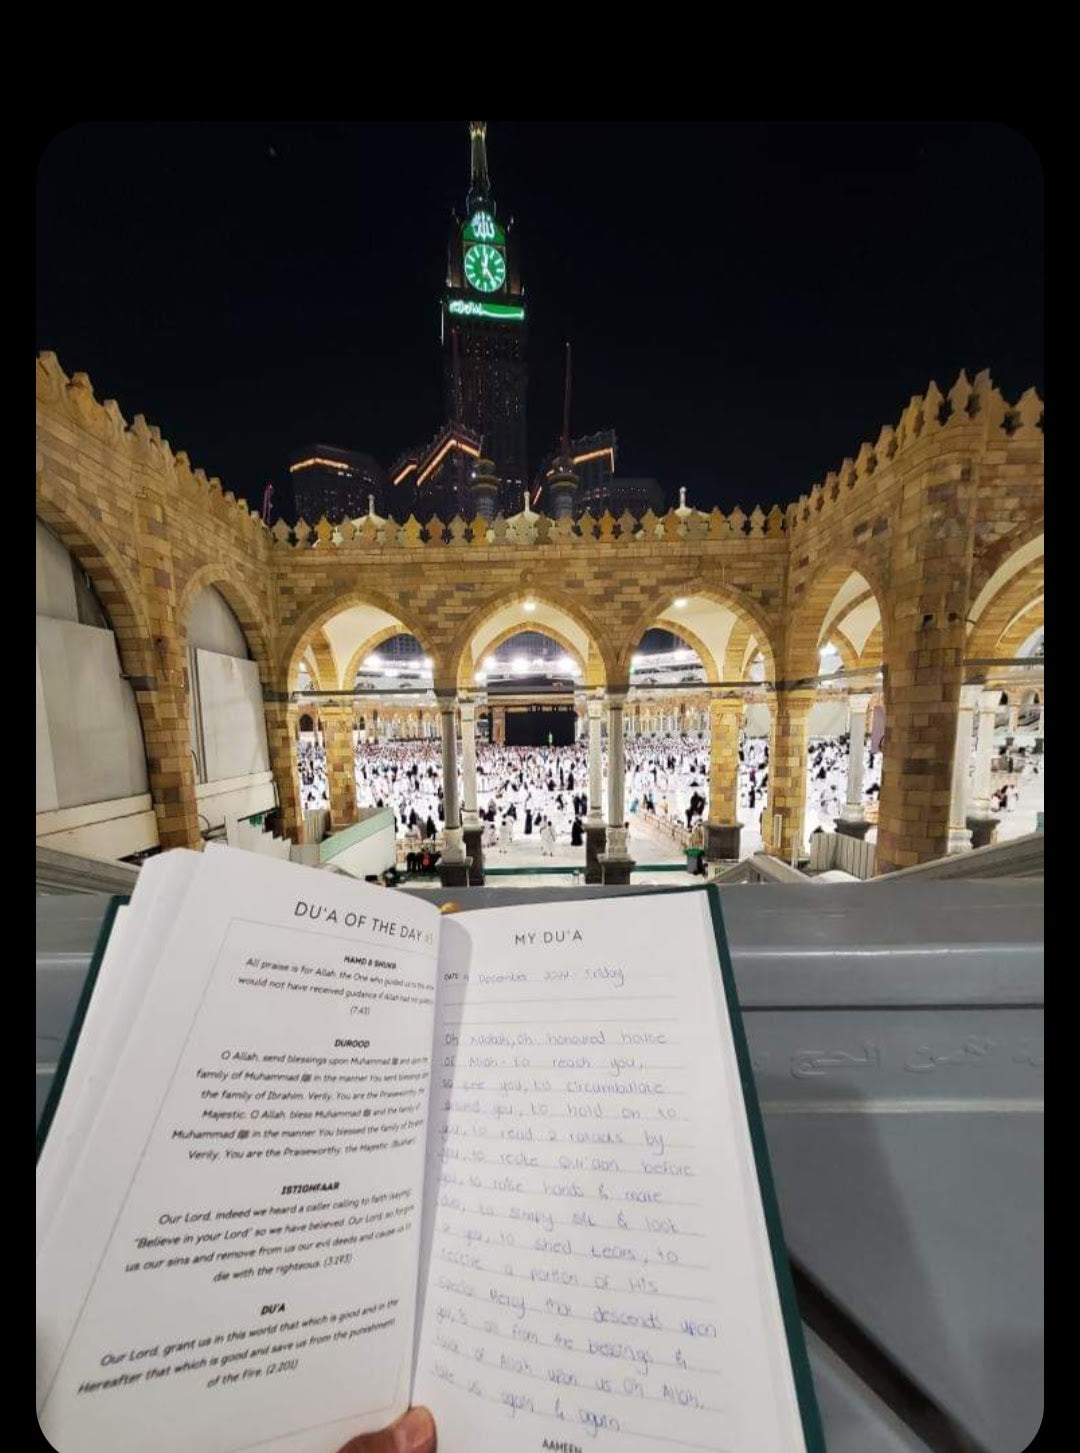 الله
DU'A OF THE DAY
HAMD & SHUKR
All praise is for Allah, the One who guided us to this
would not have received guidance if Allah had not
(7:43)
DUROOD
O Allah, send blessings upon Muhammad ﷺ and upon the
family of Muhammad ﷺ in the manner You sent blessings on
the family of Ibrahim. Verily, You are the Praiseworthy, the
Majestic. O Allah, bless Muhammad ﷺ and the family of
Muhammad ﷺ in the manner You blessed the family of
Verily, You are the Praiseworthy, the Majestic. (Bukhari)
ISTIGHFAAR
Our Lord, indeed we heard a caller calling to faith (saying)
"Believe in your Lord" so we have believed. Our Lord, so forgive
us our sins and remove from us our evil deeds and cause us to
die with the righteous. (3:193)
DU'A
Our Lord, grant us in this world that which is good and in the
Hereafter that which is good and save us from the punishment
of the Fire. (2:201)
MY DU'A
DATE December Friday
Oh Kaabah, oh honoured house
of Allah - to reach you,
to see you, to circumbulate
around you, to hold on to
you, to read 2 rakaats by
you, to recite Qur'aan before
you, to raise hands & make
to simply sit & look
you, to shed tears, to
receive a portion of His
special Mercy that descends upon
from the blessings &
of Allah upon us Oh Allah,
us again & again
AAMEEN